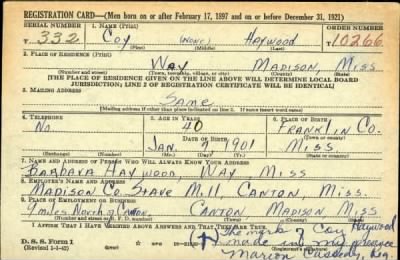 REGISTRATION CARD—(Men born on or after February 17, 1897 and on or before December 31, 1921)
SERIAL NUMBER 1. NAME (Print) ORDER NUMBER
T 332 Coy (none) Haywood 10266
(First) (Middle) (Last)
2. PLACE OF RESIDENCE (Print)
Way Madison, Miss
(Number and street) (Town, township, village, or city) (County) (State)
[THE PLACE OF RESIDENCE GIVEN ON THE LINE ABOVE WILL DETERMINE LOCAL BOARD
JURISDICTION; LINE 2 OF REGISTRATION CERTIFICATE WILL BE IDENTICAL]
3. MAILING ADDRESS
Same
[Mailing address if other than place indicated on line 2. If same insert word same]
4. TELEPHONE 5. AGE IN YEARS 6. PLACE OF BIRTH
No 40 Franklin Co.
DATE OF BIRTH (Town or county)
Jan. 1901 Miss
(Exchange) (Number) (Mo.) (Day) (Yr.) (State or country)
7. NAME AND ADDRESS OF PERSON WHO WILL ALWAYS KNOW YOUR ADDRESS
Barbara Haywood, Way Miss
8. EMPLOYER'S NAME AND ADDRESS
Madison Co. Stave Mill, Canton, Miss.
9. PLACE OF EMPLOYMENT OR BUSINESS
9 miles North of Canton, Canton Madison, Miss
(Number and street or R. F. D. number) (Town) (County) (State)
I AFFIRM THAT I HAVE VERIFIED ABOVE ANSWERS AND THAT THEY ARE TRUE.
The mark of Coy Haywood
D. S. S. Form 1 made in my presence
(Revised 1-1-42) Marion Cassidy, Reg.